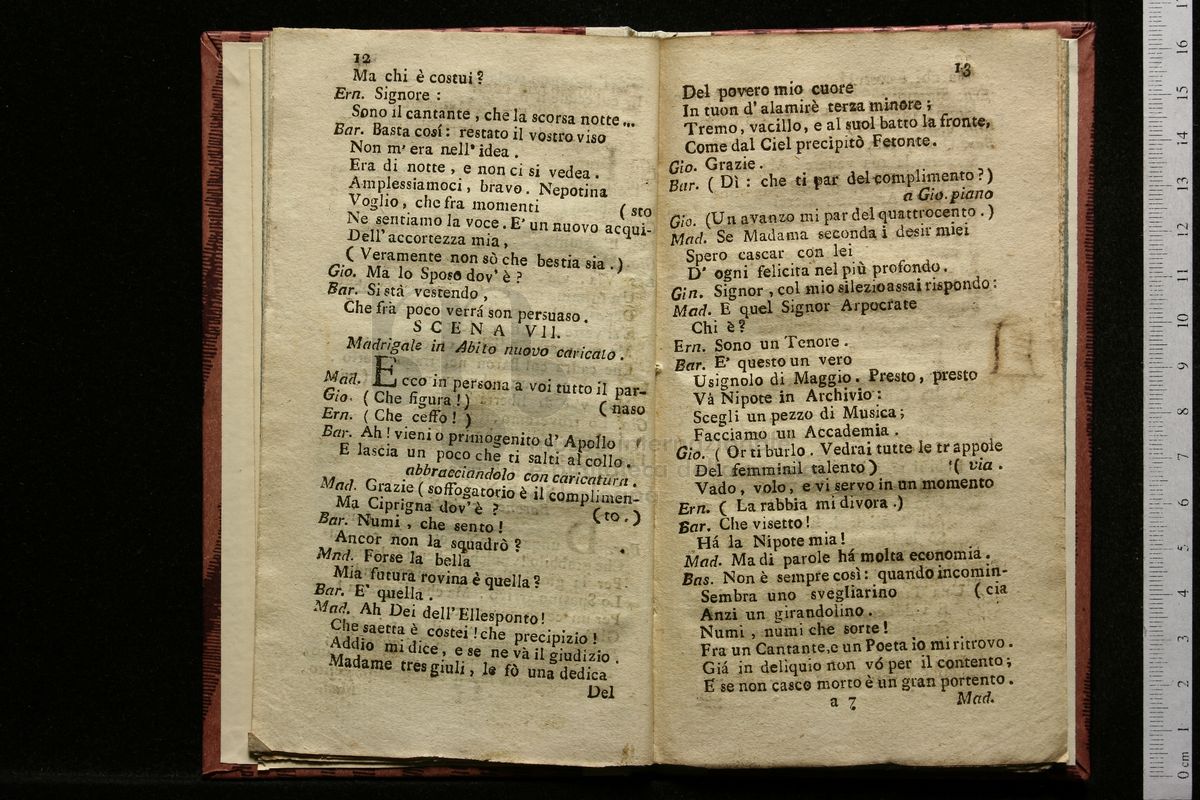 12
Ma chi è costui?
Ern. Signore :
Sono il cantante , che la scorsa notte...
Bar. Basta così: restato il vostro viso
Non m' era nell' idea .
Era di notte , e non ci si vedea .
Amplessiamoci, bravo. Nepotina
Voglio, che fra momenti ( sto
Ne sentiamo la voce. E' un nuovo acqui-
Dell' accortezza mia ,
( Veramente non sò che bestia sia .)
Gio. Ma lo Sposo dov' è ?
Bar. Si stà vestendo ,
Che frà poco verrá son persuaso .
SCENA VII.
Madrigale in Abito nuovo caricato .
Mad. Ecco in persona a voi tutto il par-
Gio. ( Che figura! ) ( naso
Ern. ( Che ceffo! )
Bar. Ah! vieni o primogenito d' Apollo
E lascia un poco che ti salti al collo .
abbracciandolo con caricatura .
Mad. Grazie ( soffogatorio è il complimen-
Ma Ciprigna dov' è ? ( to. )
Bar. Numi , che sento !
Ancor non la squadrò ?
Mad. Forse la bella
Mia futura rovina è quella ?
Bar. E' quella .
Mad. Ah Dei dell' Ellesponto!
Che saetta è costei ! che precipizio !
Addio mi dice , e se ne và il giudizio .
Madame tres giuli , le fò una dedica
Del
13
Del povero mio cuore
In tuon d' alamirè terza minore ;
Tremo, vacillo, e al suol batto la fronte,
Come dal Ciel precipitò Fetonte.
Gio. Grazie .
Bar. ( Dì : che ti par del complimento ?)
a Gio. piano
Gio. (Un avanzo mi par del quattrocento .)
Mad. Se Madama seconda i desir miei
Spero cascar con lei
D' ogni felicita nel più profondo .
Gin. Signor , col mio silezio assai rispondo :
Mad. E quel Signor Arpocrate
Chi è ?
Ern. Sono un Tenore .
Bar. E' questo un vero
Usignolo di Maggio. Presto, presto
Và Nipote in Archivio :
Scegli un pezzo di Musica ;
Facciamo un Accademia .
Gio. ( Or ti burlo. Vedrai tutte le trappole
Del femminil talento ) ( via .
Vado, volo, e vi servo in un momento
Ern. ( La rabbia mi divora .)
Bar. Che visetto !
Há la Nipote mia !
Mad. Ma di parole há molta economia .
Bas. Non è sempre così: quando incomin-
Sembra uno svegliarino ( cia
Anzi un girandolino .
Numi , numi che sorte !
Fra un Cantante, e un Poeta io mi ritrovo .
Giá in deliquio non vó per il contento ;
E se non casco morto è un gran portento .
a 7 Mad.